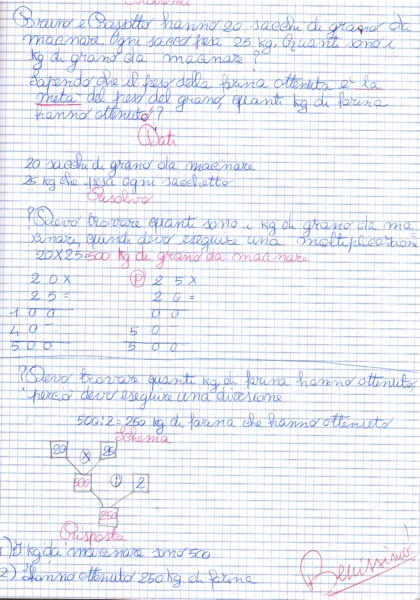 Bruino e Rossotto hanno 20 sacchi di grano da
macinare. Ogni sacco pesa 25 kg. Quanti sono i
kg di grano da macinare?
Sapendo che il peso della farina ottenuta è la
metà del peso del grano, quanti kg di farina
hanno ottenuto?
Dati
20 sacchi di grano da macinare
25 kg che pesa ogni sacchetto
Risolvo
?Devo trovare quanti sono i kg di grano da ma=
cinare, quindi devo eseguire una moltiplicazione
20X25=500 kg di grano da macinare
20X P 25X
25= 20=
100 00
40 50
500 500
?Devo trovare quanti kg di farina hanno ottenuto,
perciò devo eseguire una divisione
500:2=250 kg di farina che hanno ottenuto
Schema
20 X 25
500 : 2
250
Risposta
1) I kg da macinare sono 500
2) Hanno ottenuto 250 kg di farina
Benissimo!